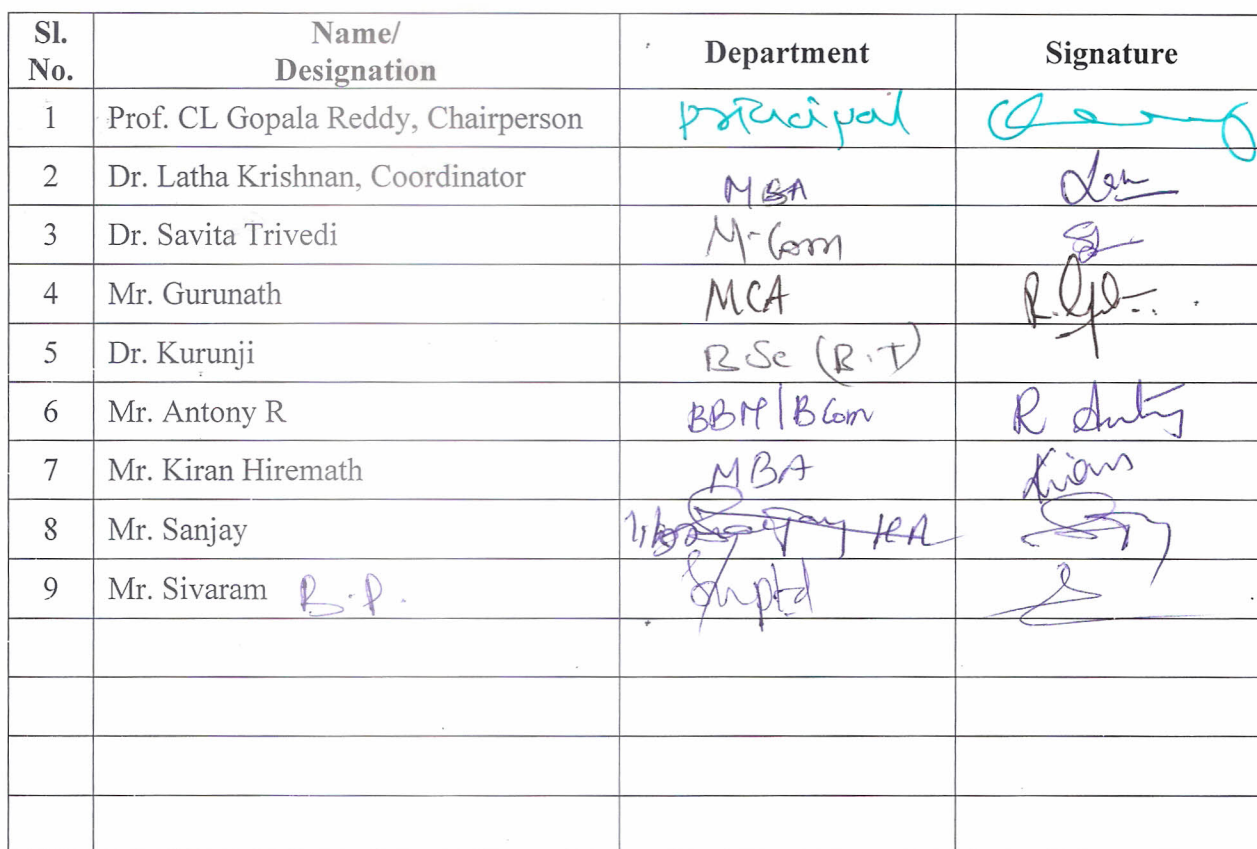 Sl. No. Name/ Designation Department Signature
1 Prof. CL Gopala Reddy, Chairperson Principal
2 Dr. Latha Krishnan, Coordinator MBA
3 Dr. Savita Trivedi M-Com
4 Mr. Gurunath MCA
5 Dr. Kurunji B Sc (B.T)
6 Mr. Antony R BBM/BCom R Antony
7 Mr. Kiran Hiremath MBA Kiran
8 Mr. Sanjay
9 Mr. Sivaram B.P. Suptd